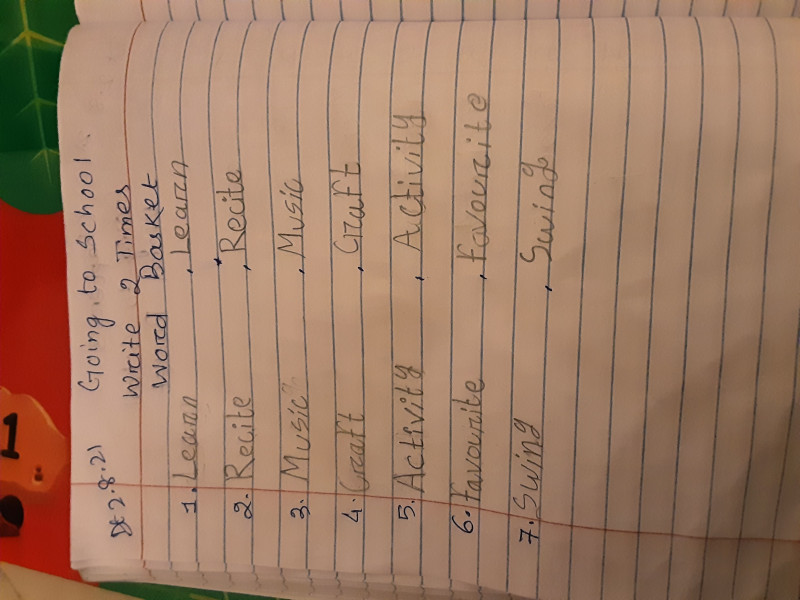 Dt 2.8.21 Going to School
Write 2 Times
Word Basket
1. Learn , Learn
2. Recite , Recite
3. Music , Music
4. Craft , Craft
5. Activity , Activity
6. Favourite , Favourite
7. Swing , Swing
1